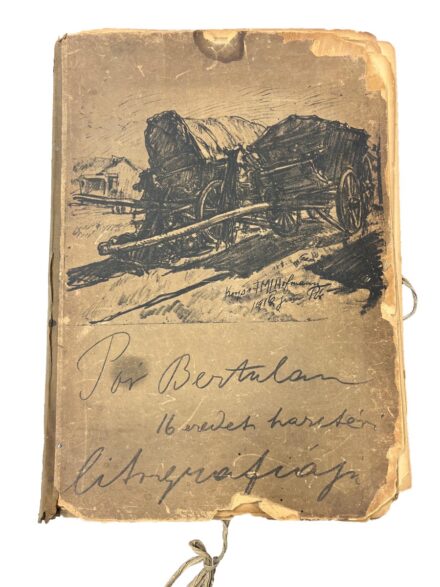 FML Hofmann
1916 jun
Pór Bertalan
16 eredeti harctéri
litografiája